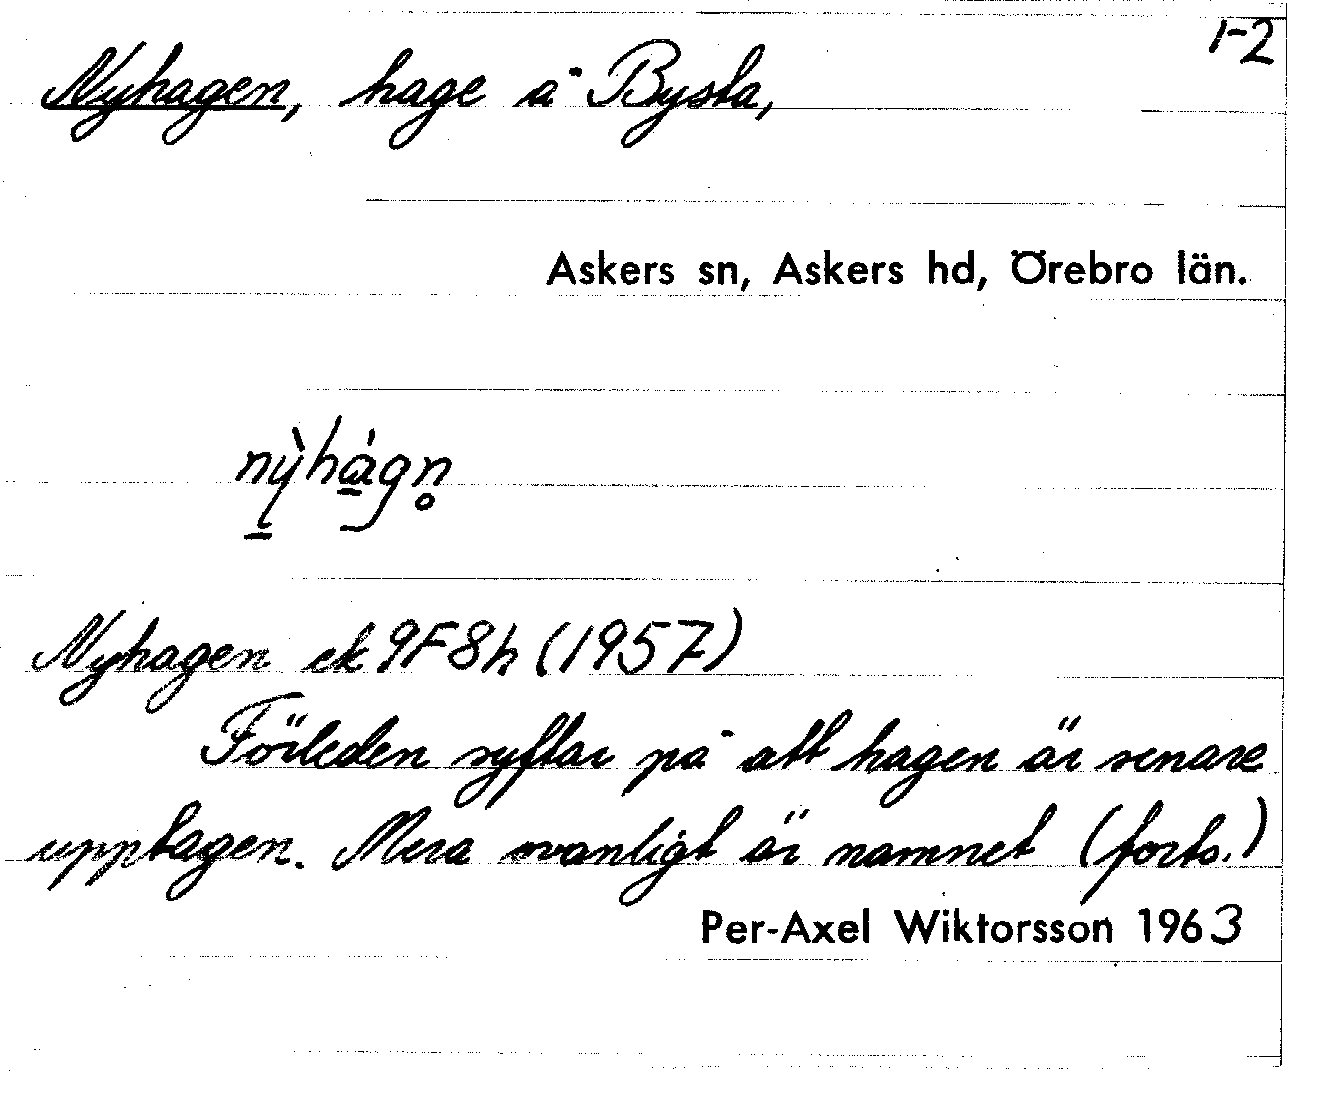 1-2
Nyhagen, hage å Bysta,
Askers sn, Askers hd, Örebro län.
nỳhágn̥
Nyhagen ek 9F8h (1957)
Förleden syftar på att hagen är senare
upptagen. Mera ovanligt är namnet (forts.)
Per-Axel Wiktorsson 1963